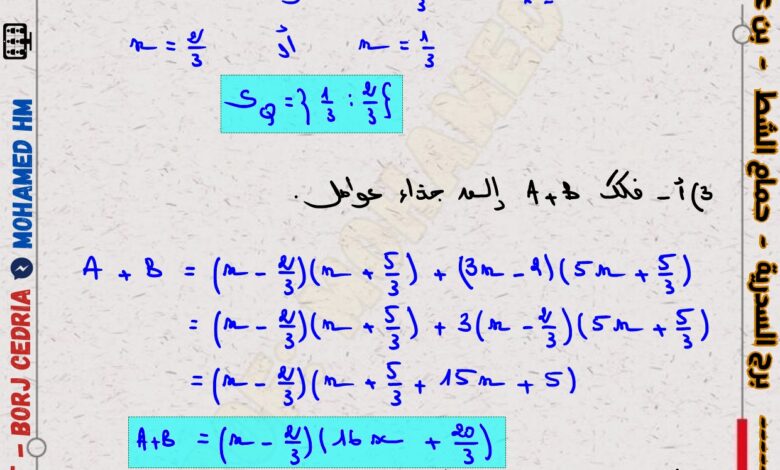 x = 2/3 أو x = 1/3
S_Q = {1/3 ; 2/3}
3) أ - فكك A + B إلى جذاء عوامل.
A + B = (x - 2/3)(x + 5/3) + (3x - 2)(5x + 5/3)
= (x - 2/3)(x + 5/3) + 3(x - 2/3)(5x + 5/3)
= (x - 2/3)(x + 5/3 + 15x + 5)
A+B = (x - 2/3)(16x + 20/3)
- BORJ CEDRIA MOHAMED HM
برج السدرية - حمام الشط - بن
MOHAMED